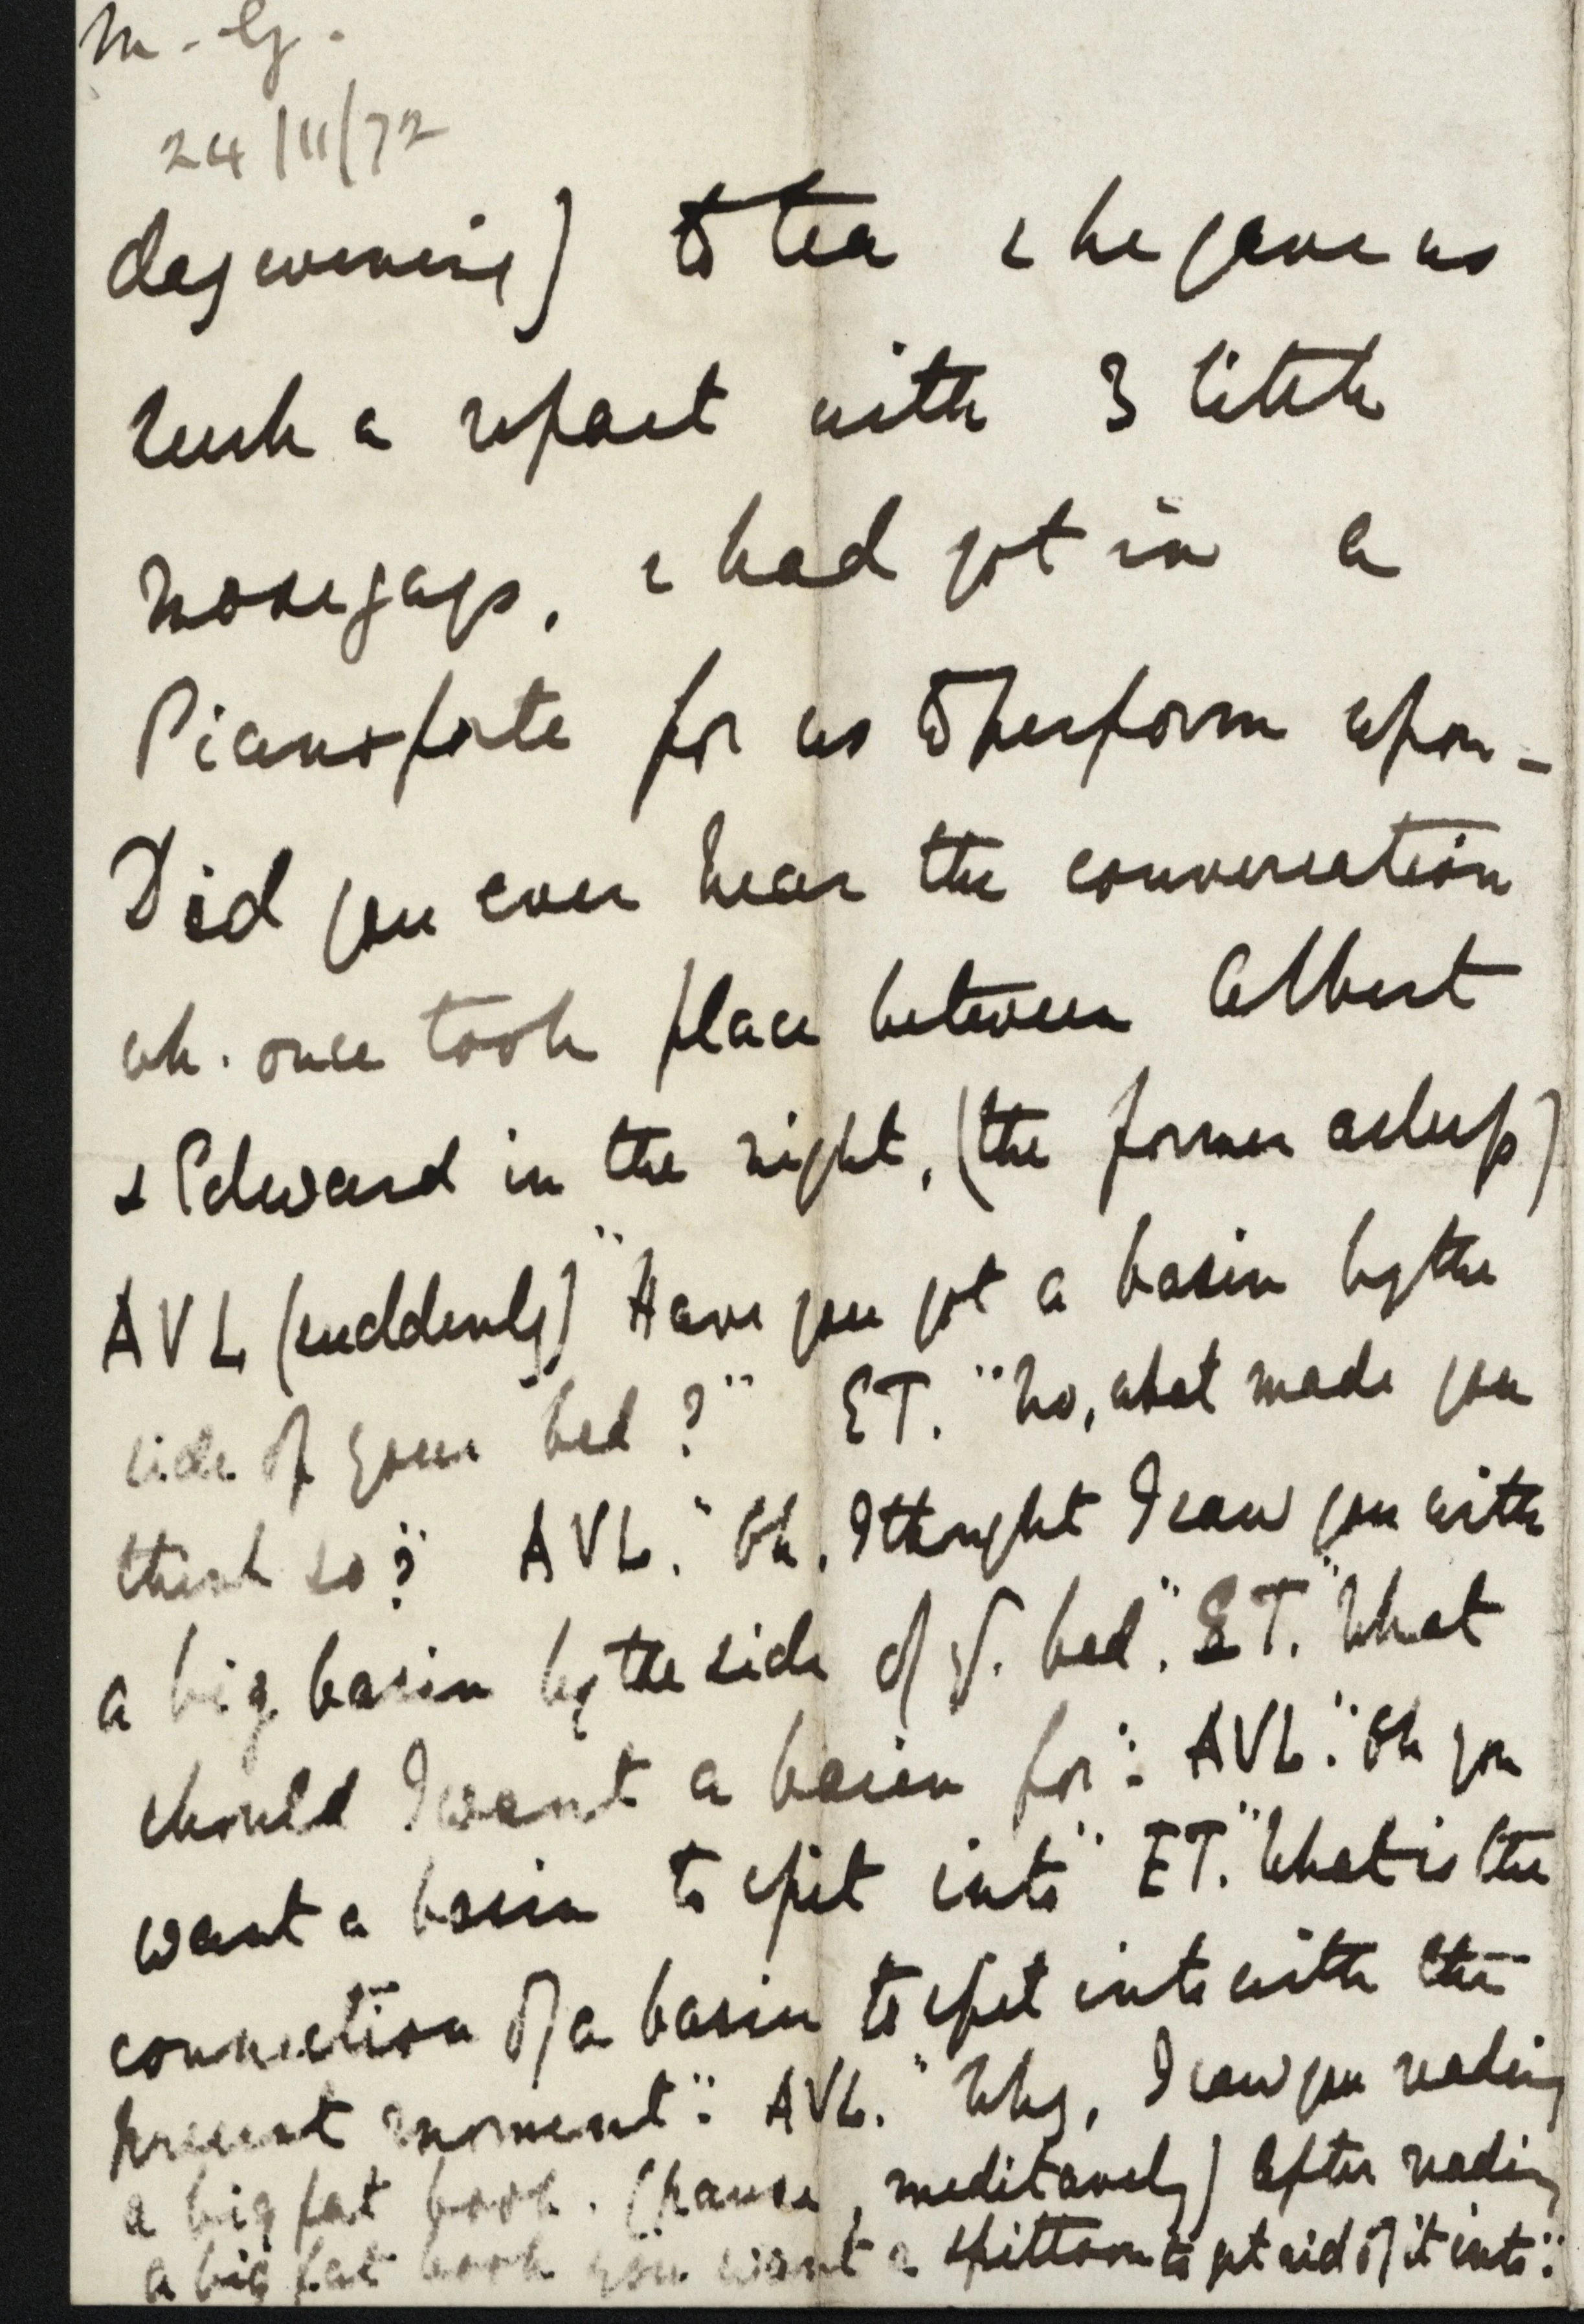 M. G.
24/11/72
day evening) to tea & he gave us
such a repast with 3 little
nosegays, & had got in a
Pianoforte for us to perform upon_
Did you ever hear the conversation
wh. once took place between Albert
& Edward in the night, (the former asleep)
AVL (suddenly) "Have you got a basin by the
side of your bed?" ET. "No, what made you
think so?" AVL. "Oh, I thought I saw you with
a big basin by the side of yr. bed". ET. "What
should I want a basin for": AVL. "Oh you
want a basin to spit into" ET. "What is the
connection of a basin to spit into with the
present moment": AVL. "Why, I saw you reading
a big fat book. (pause, meditavely) After reading
a big fat book you want a spittoon to get rid of it into":